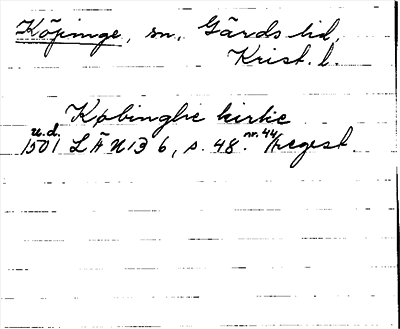 Köpinge, sn, Gärds hd,
Krist. l.
Købinghe kirke
u.d.
1501 LÄUB 6, s. 48. nr. 44 Aregest.